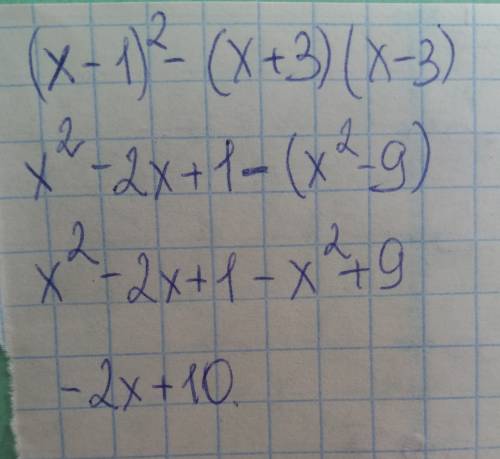 (x-1)²-(x+3)(x-3)
x²-2x+1-(x²-9)
x²-2x+1-x²+9
-2x+10.